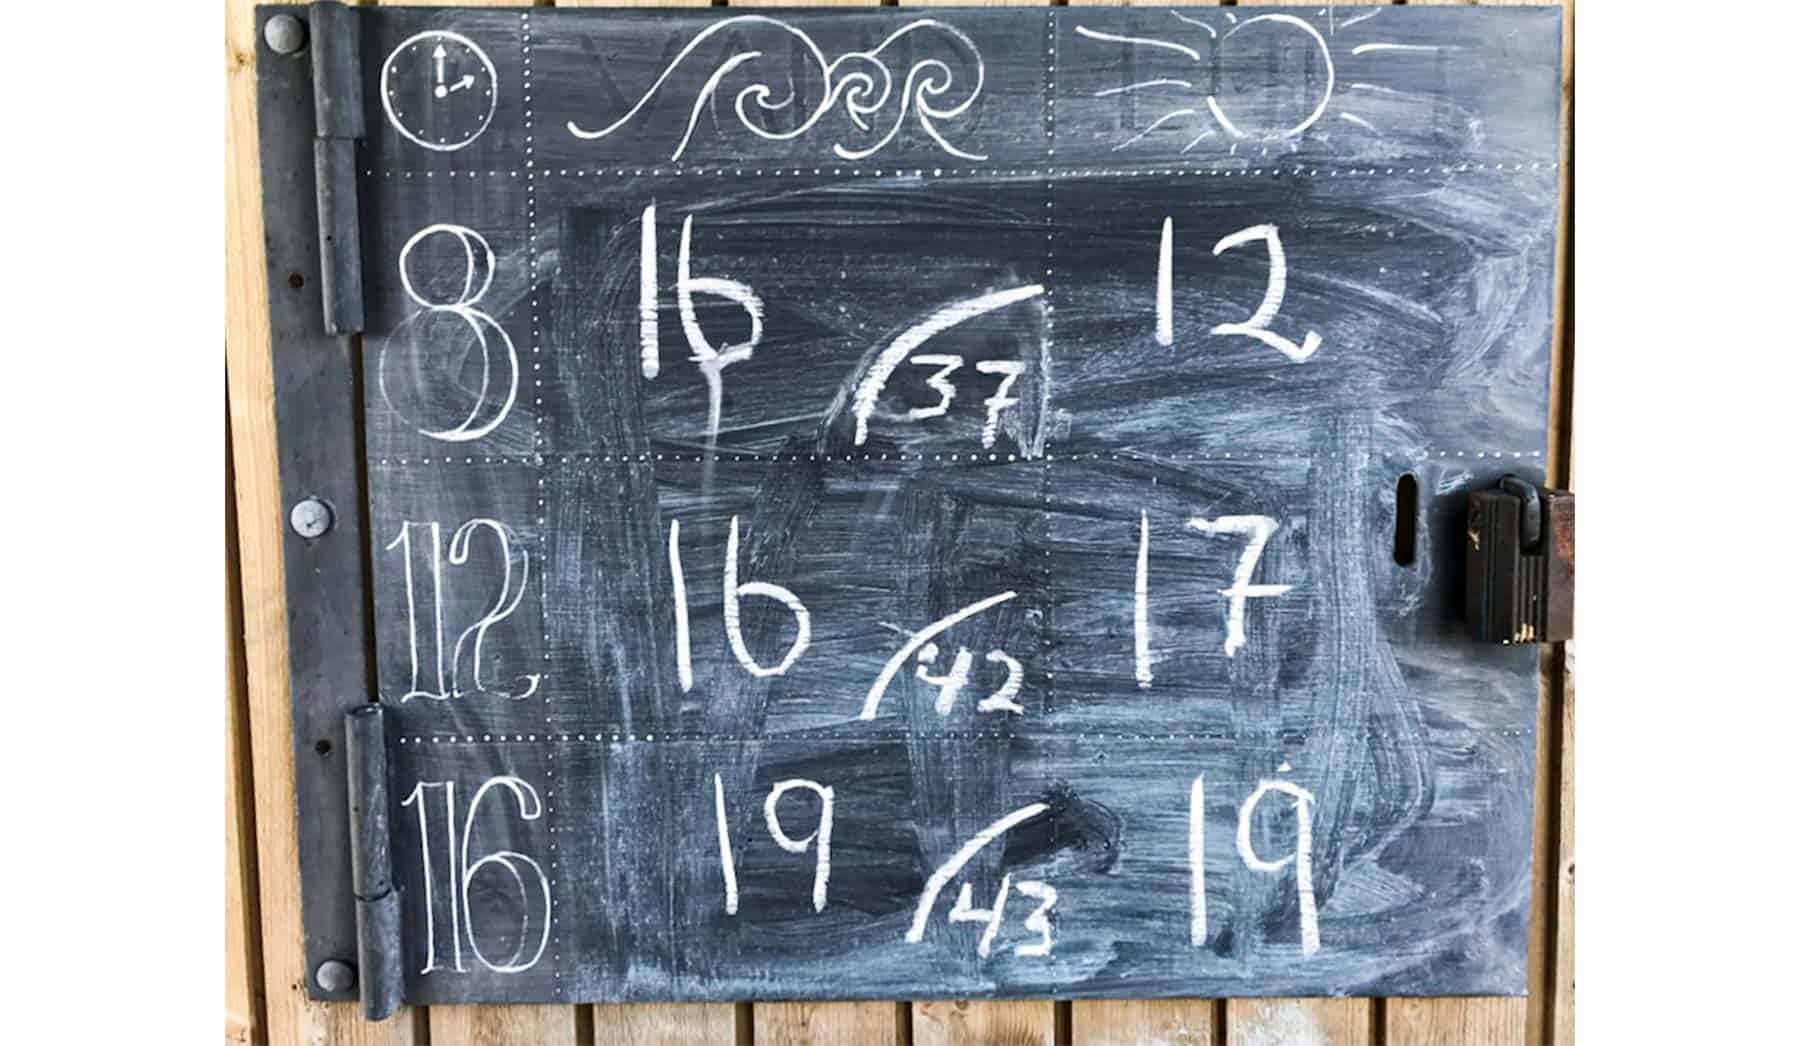 8 16 37 12
12 16 42 17
16 19 43 19